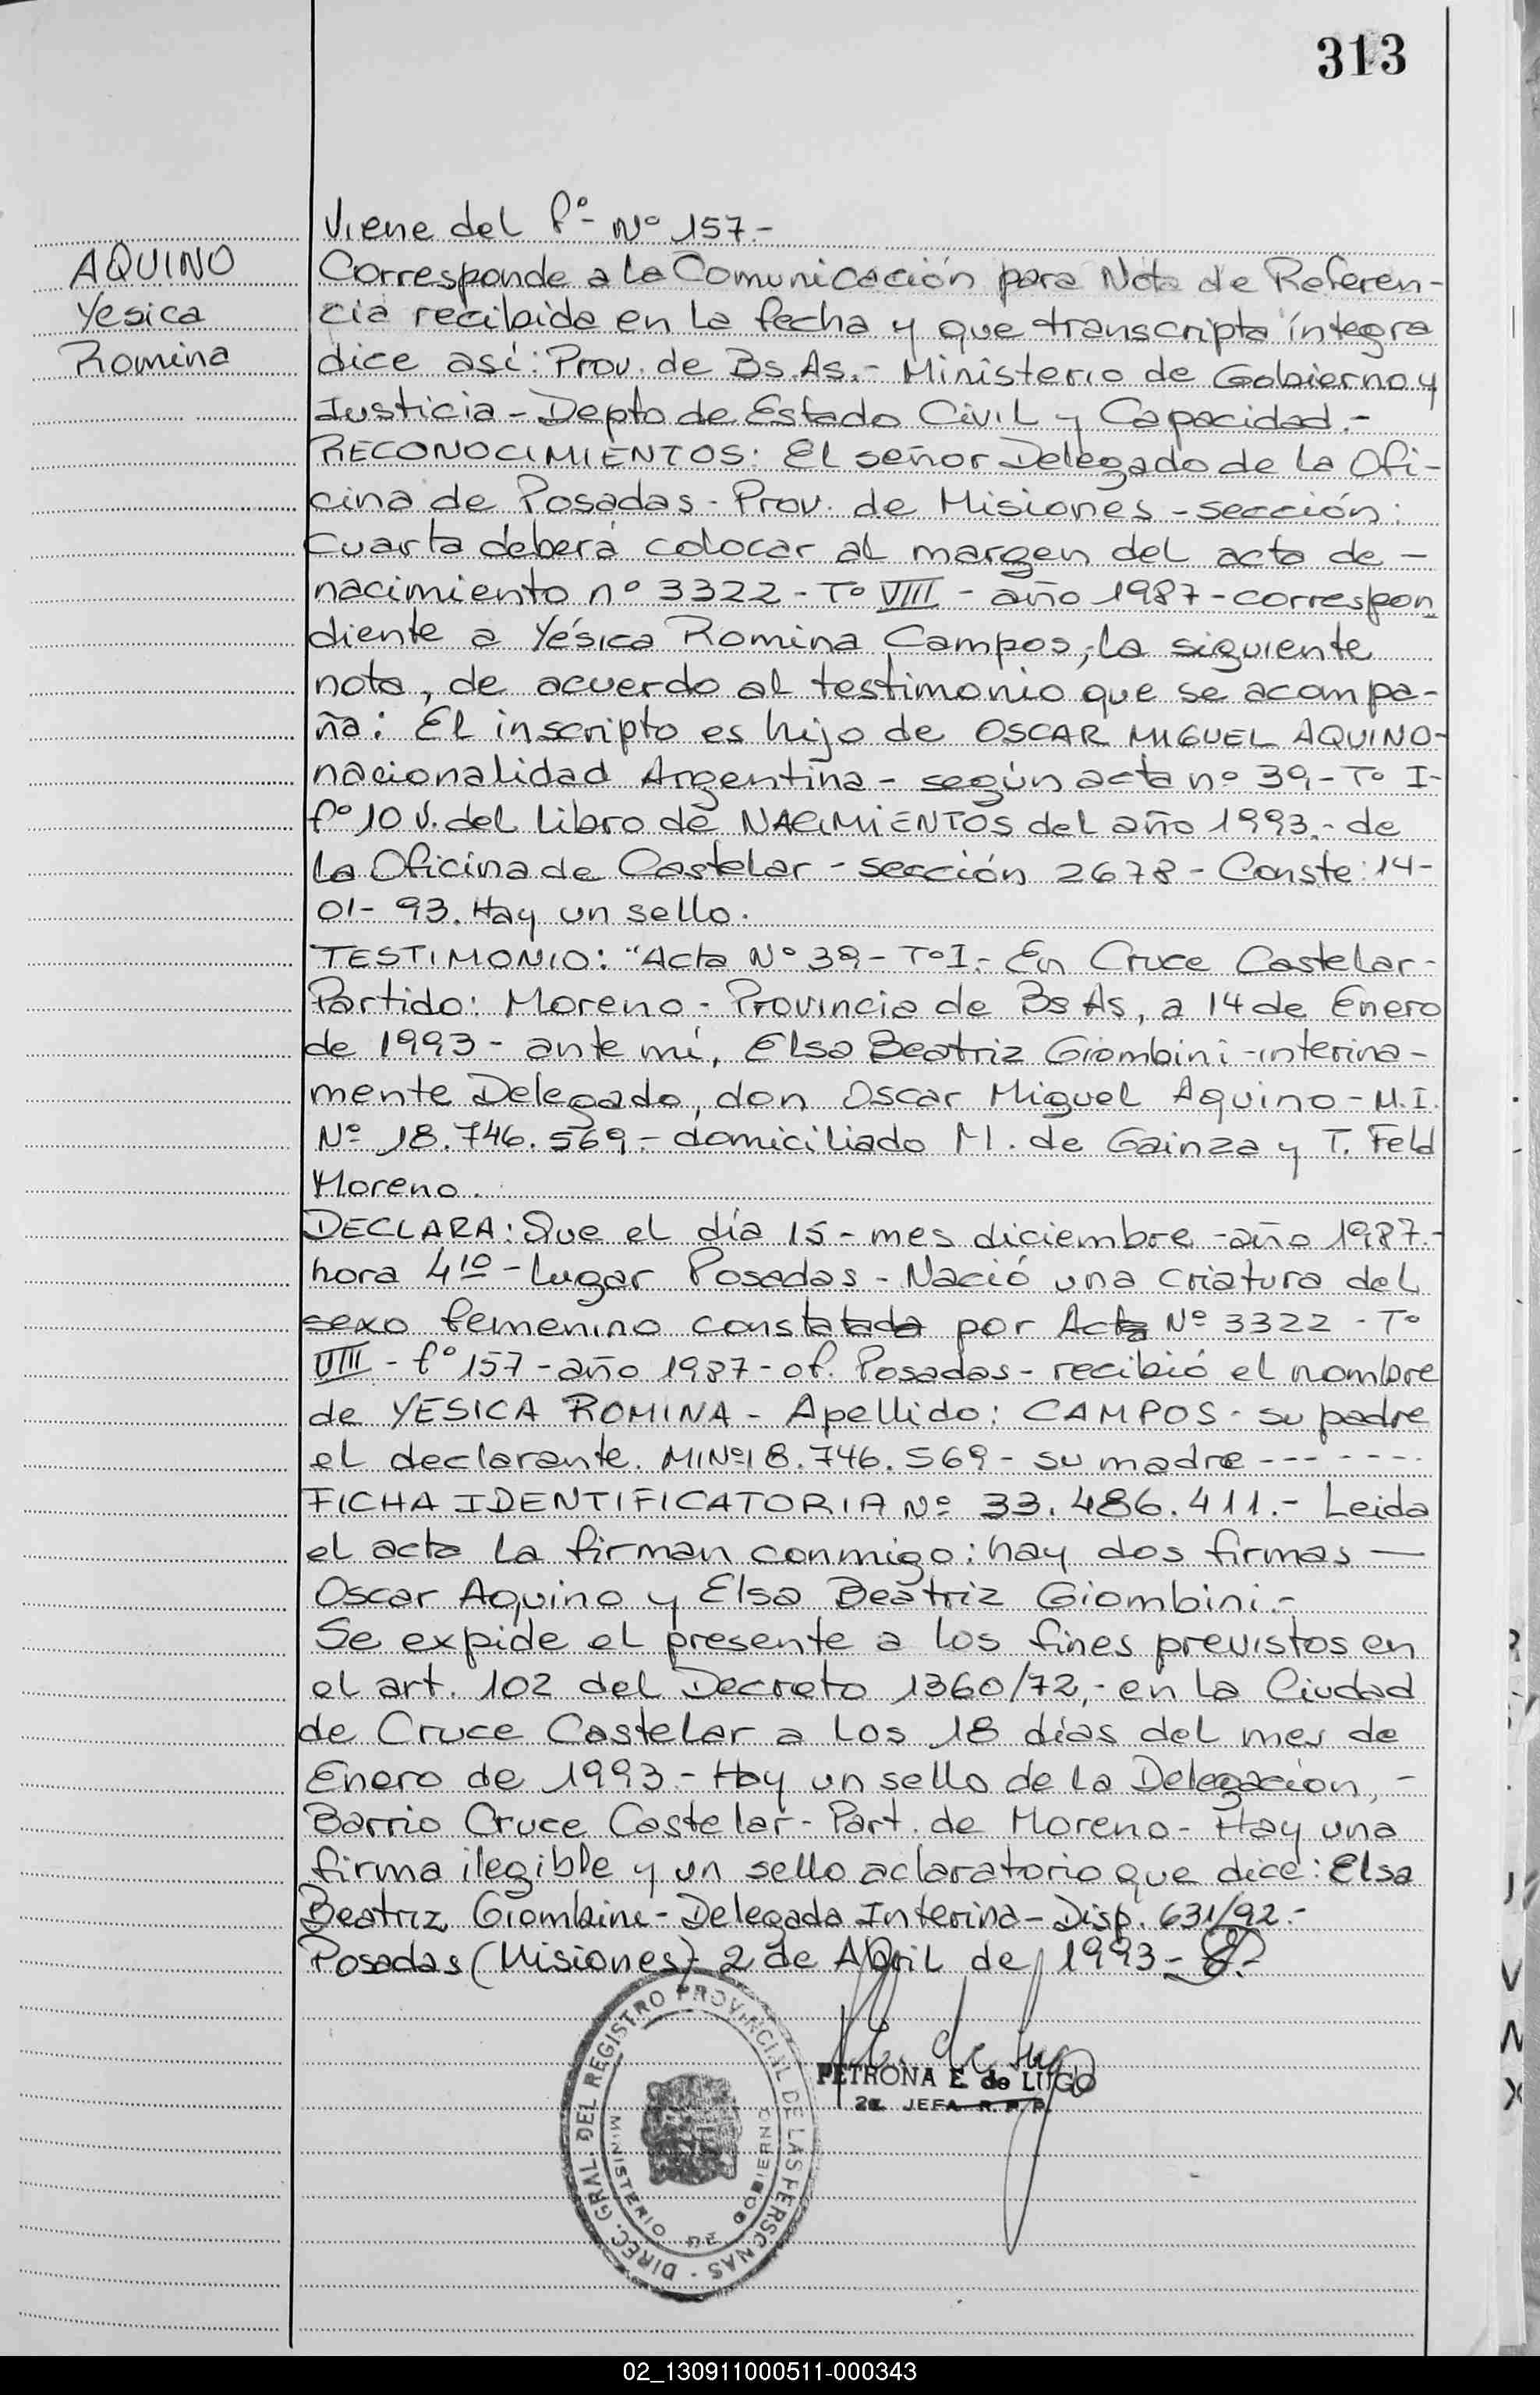 313
Viene del fº- Nº 157.-
AQUINO
Yesica
Romina
Corresponde a la Comunicación para Nota de Referen-
cia recibida en la fecha y que transcripta íntegra
dice así: Prov. de Bs.As.- Ministerio de Gobierno y
Justicia - Depto de Estado Civil y Capacidad.-
RECONOCIMIENTOS: El señor Delegado de la Ofi-
cina de Posadas - Prov. de Misiones - sección:
Cuarta deberá colocar al margen del acta de -
nacimiento nº 3322 - Tº VIII - año 1987 - correspon
diente a Yésica Romina Campos, la siguiente
nota, de acuerdo al testimonio que se acompa-
ña: El inscripto es hijo de OSCAR MIGUEL AQUINO-
nacionalidad Argentina - según acta nº 39 - Tº I-
fº 10 V. del Libro de NACIMIENTOS del año 1993.- de
la Oficina de Castelar - sección 2678 - Conste: 14-
01- 93. Hay un sello.
TESTIMONIO: "Acta Nº 39 - TºI.- En Cruce Castelar-
Partido: Moreno - Provincia de Bs As, a 14 de Enero
de 1993 - ante mí, Elsa Beatriz Giombini - interina-
mente Delegado, don Oscar Miguel Aquino - M.I.
Nº 18.746.569.- domiciliado M. de Gainza y T. Feld
Moreno.
DECLARA: Que el día 15 - mes diciembre - año 1987.-
hora 4¹⁰ - lugar Posadas - Nació una criatura del
sexo femenino constatada por Acta Nº 3322 - Tº
VIII - fº 157 - año 1987 - of. Posadas - recibió el nombre
de YESICA ROMINA - Apellido: CAMPOS - su padre
el declarante. MINº18.746.569 - su madre ------
FICHA IDENTIFICATORIA Nº 33.486.411.- Leida
el acta la firman conmigo: hay dos firmas —
Oscar Aquino y Elsa Beatriz Giombini.-
Se expide el presente a los fines previstos en
el art. 102 del Decreto 1360/72,- en la Ciudad
de Cruce Castelar a los 18 días del mes de
Enero de 1993 - Hay un sello de la Delegación, -
Barrio Cruce Castelar - Part. de Moreno - Hay una
firma ilegible y un sello aclaratorio que dice: Elsa
Beatriz Giombini - Delegada Interina - Disp. 631/92.-
Posadas (Misiones) 2 de Abril de 1993 -
DIREC. GRAL. DEL REGISTRO PROVINCIAL DE LAS PERSONAS -
MINISTERIO DE GOBIERNO
PETRONA E de LUGO
JEFA R.P.P.
02_130911000511-000343